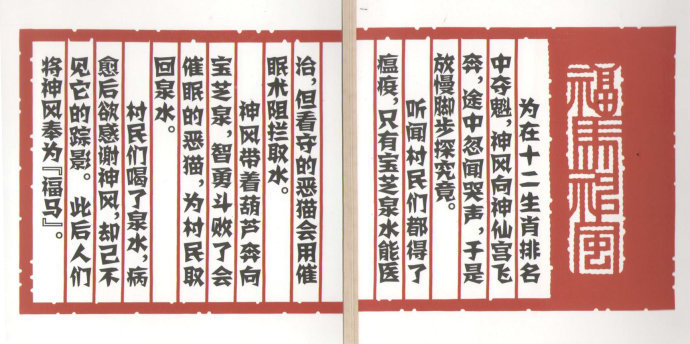 福馬神風
为在十二生肖排名
中夺魁，神风向神仙宫飞
奔，途中忽闻哭声，于是
放慢脚步探究竟。
听闻村民们都得了
瘟疫，只有宝芝泉水能医
治，但看守的恶猫会用催
眠术阻拦取水。
神风带着葫芦奔向
宝芝泉，智勇斗败了会
催眠的恶猫，为村民取
回泉水。
村民们喝了泉水，病
愈后欲感谢神风，却已不
见它的踪影。此后人们
将神风奉为『福马』。